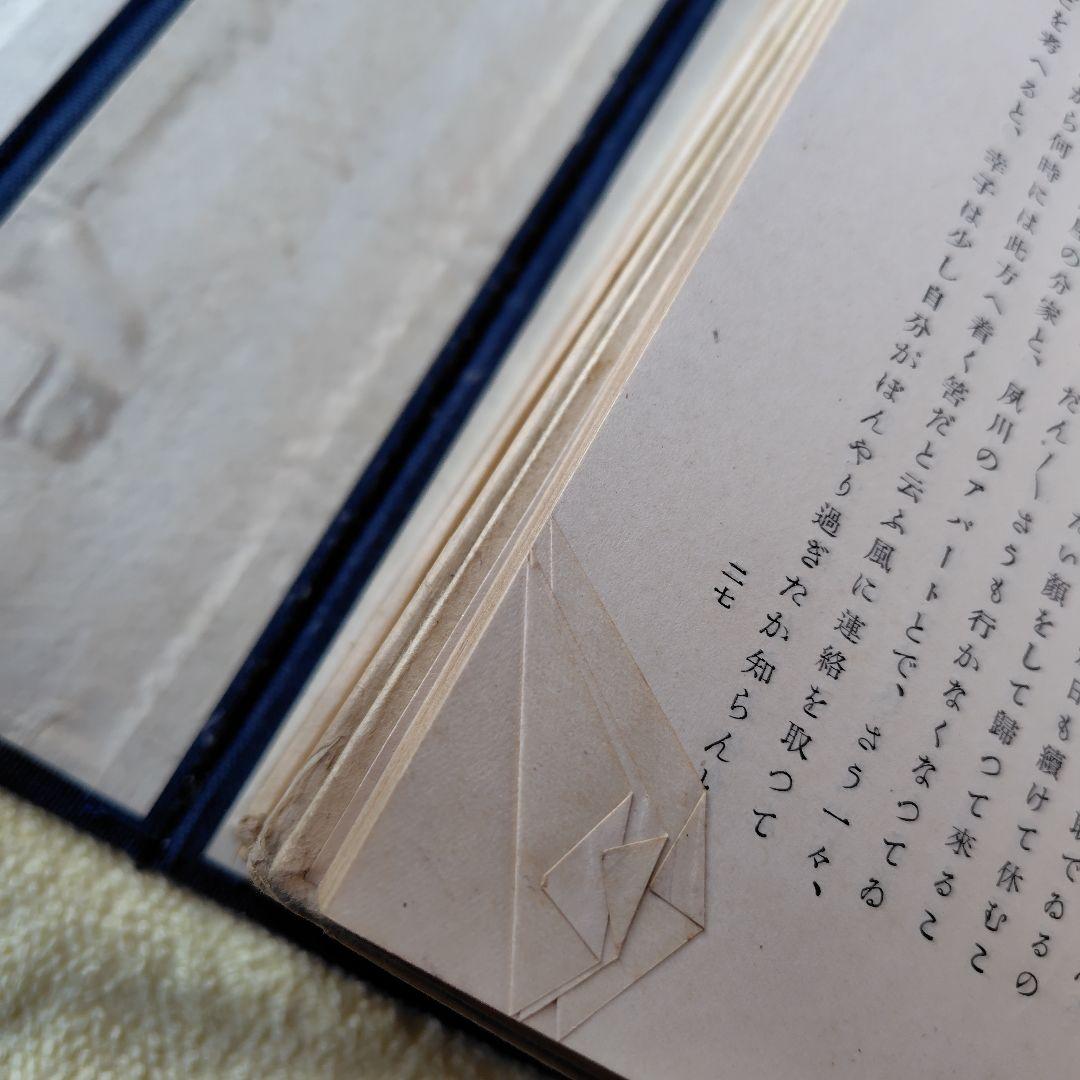 でゐるの
日も續けて休むこ
い顔をして歸つて來るこ
だん〳〵さうも行かなくなつてゐ
の分家と、夙川のアパートとで、さう一々、
から何時には此方へ着く筈だと云ふ風に連絡を取つて
を考へると、幸子は少し自分がぼんやり過ぎたか知らん
二七